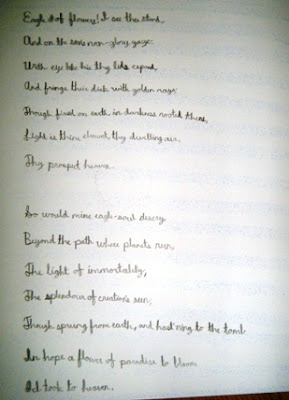 Eagle of flowers! I see thee stand
And on the suns noon-glory gaze
With eye like his thy lids expand,
And fringe their disk with golden rays
Though fixed on earth in darkness rooted there,
Light is thine element, thy dwelling air,
Thy prospect heaven
So would mine eagle-soul descry
Beyond the path where planets run,
The light of immortality,
The splendour of creation's sun;
Though sprung from earth, and hast'ning to the tomb
In hope a flower of paradise to bloom
I look to heaven.